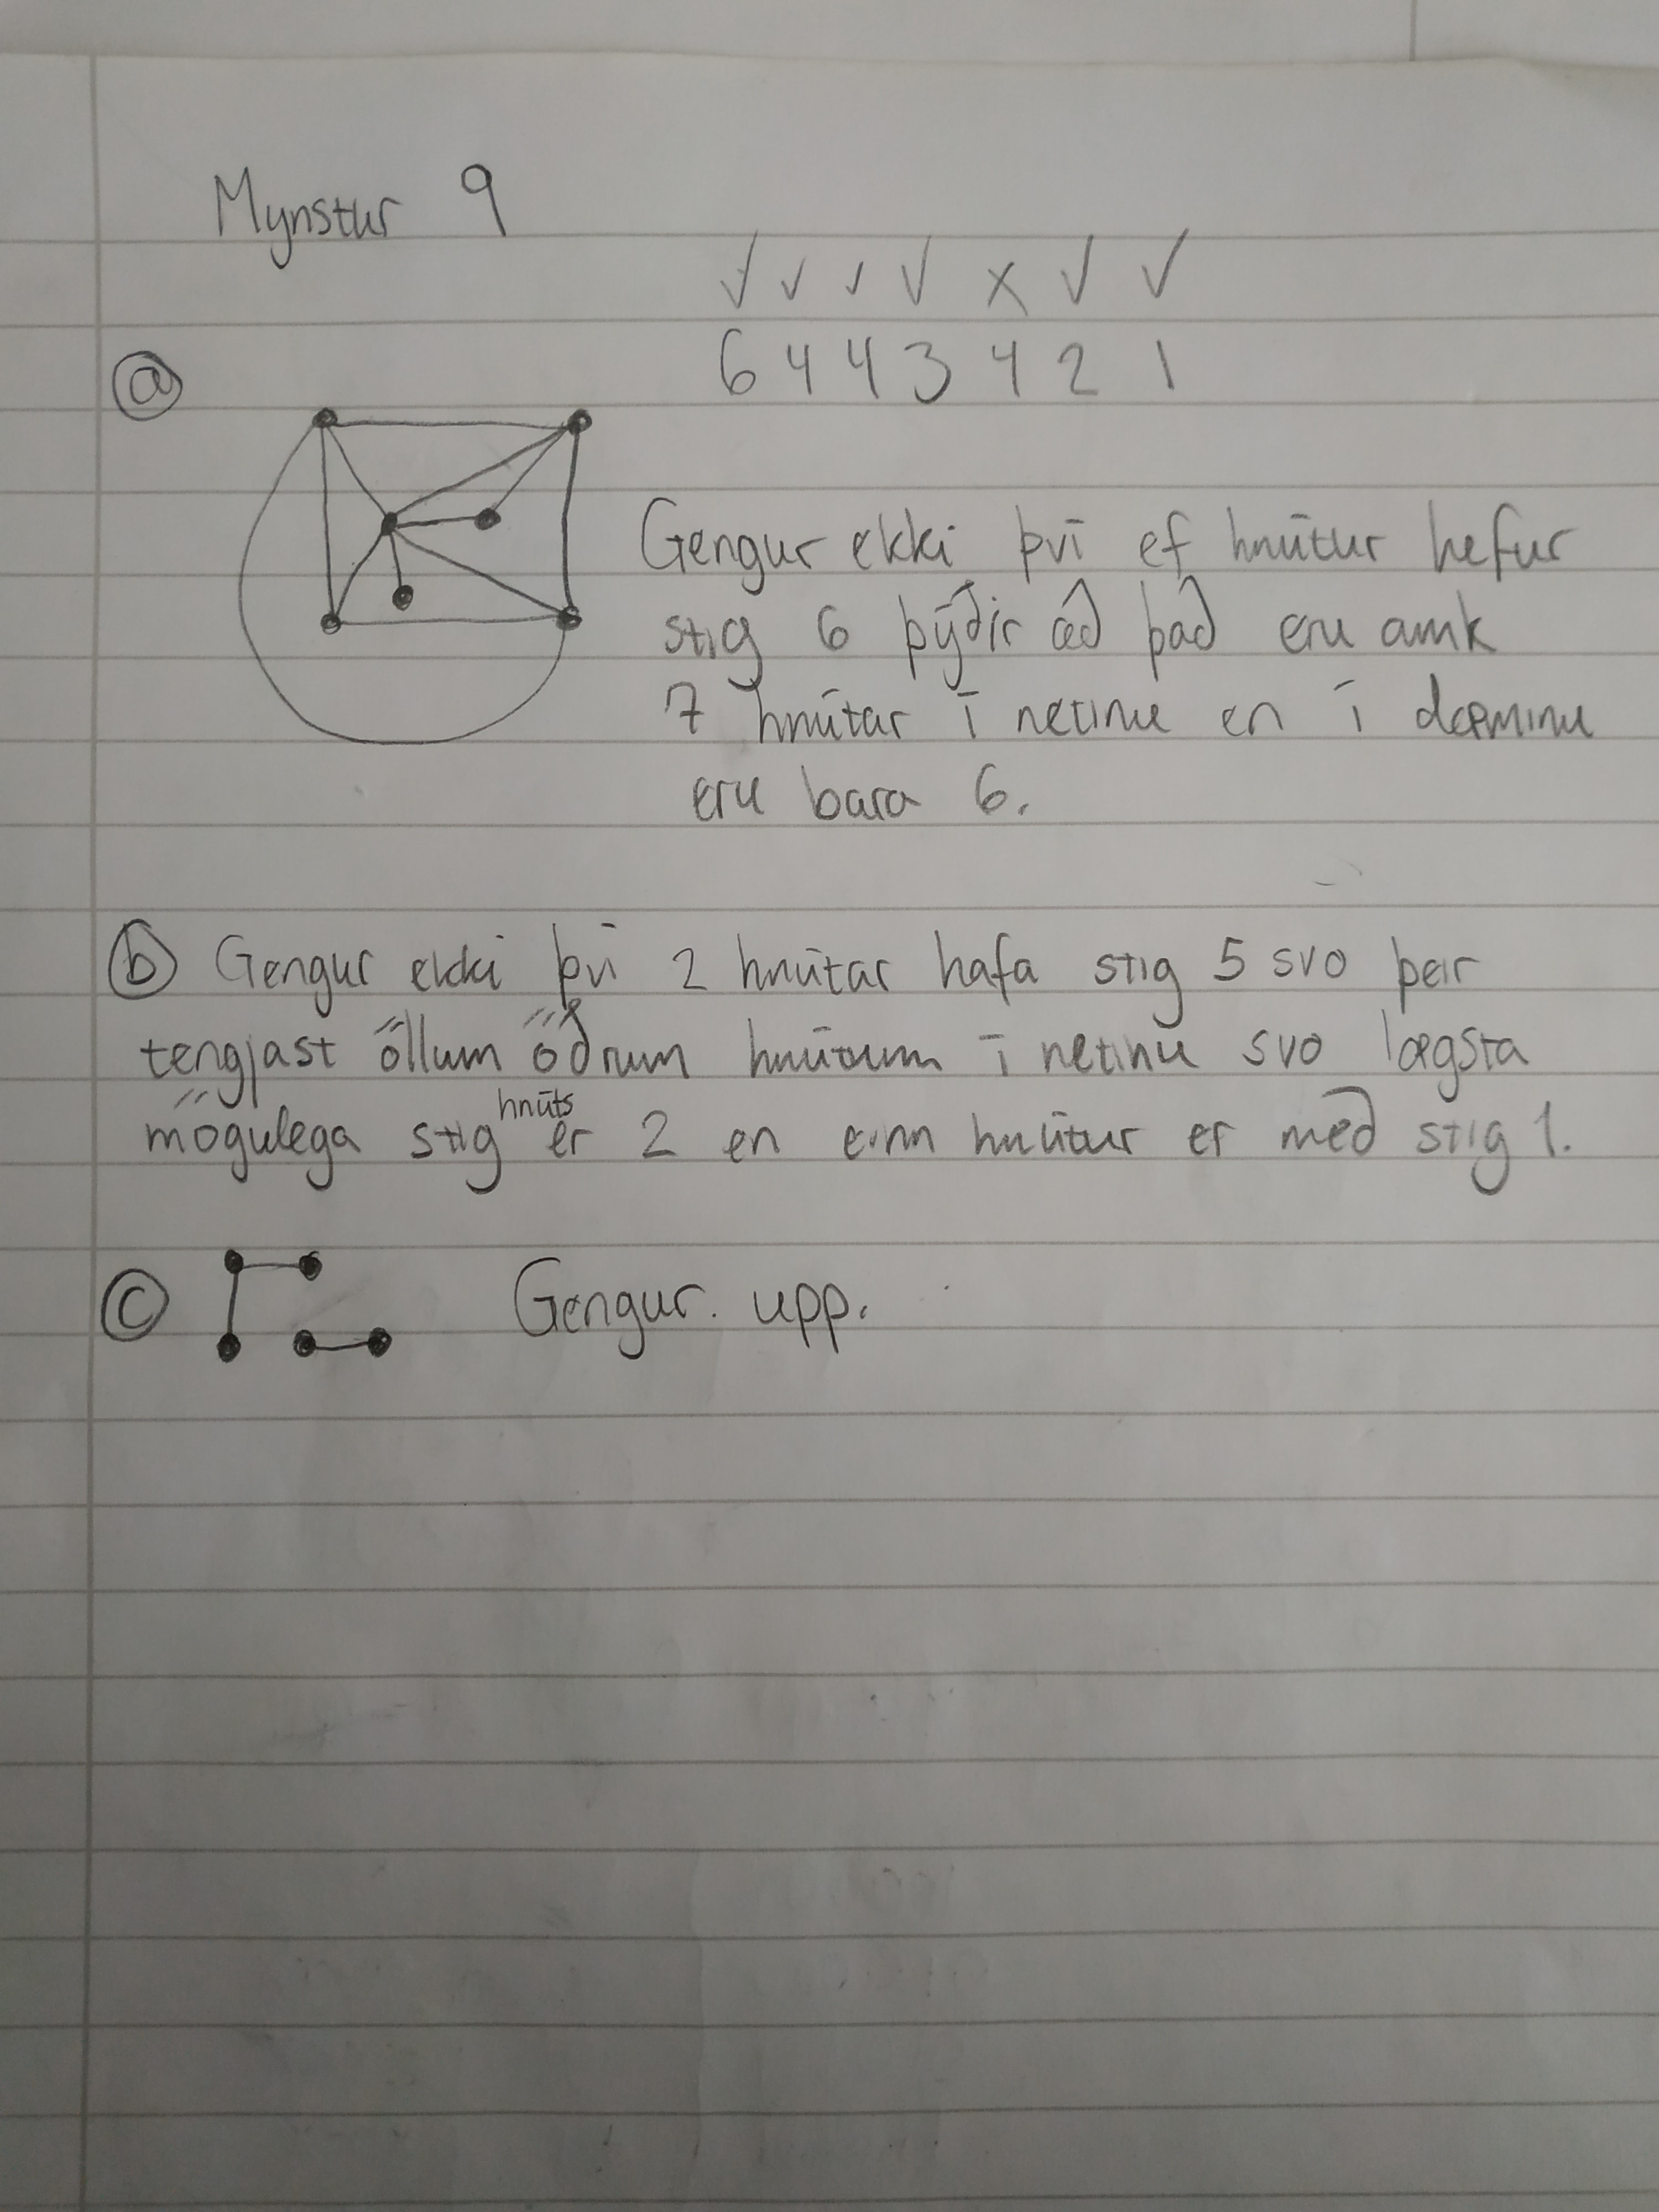 Mynstur 9
✓ ✓ ✓ ✓ x ✓ ✓
6 4 4 3 4 2 1
a
Gengur ekki því ef hnútur hefur
stig 6 þýðir að það eru amk
7 hnútar í netinu en í dæminu
eru bara 6.
b Gengur ekki því 2 hnútar hafa stig 5 svo þeir
tengjast öllum öðrum hnútum í netinu svo lægsta
mögulega stig hnúts er 2 en einn hnútur er með stig 1.
c Gengur. upp.